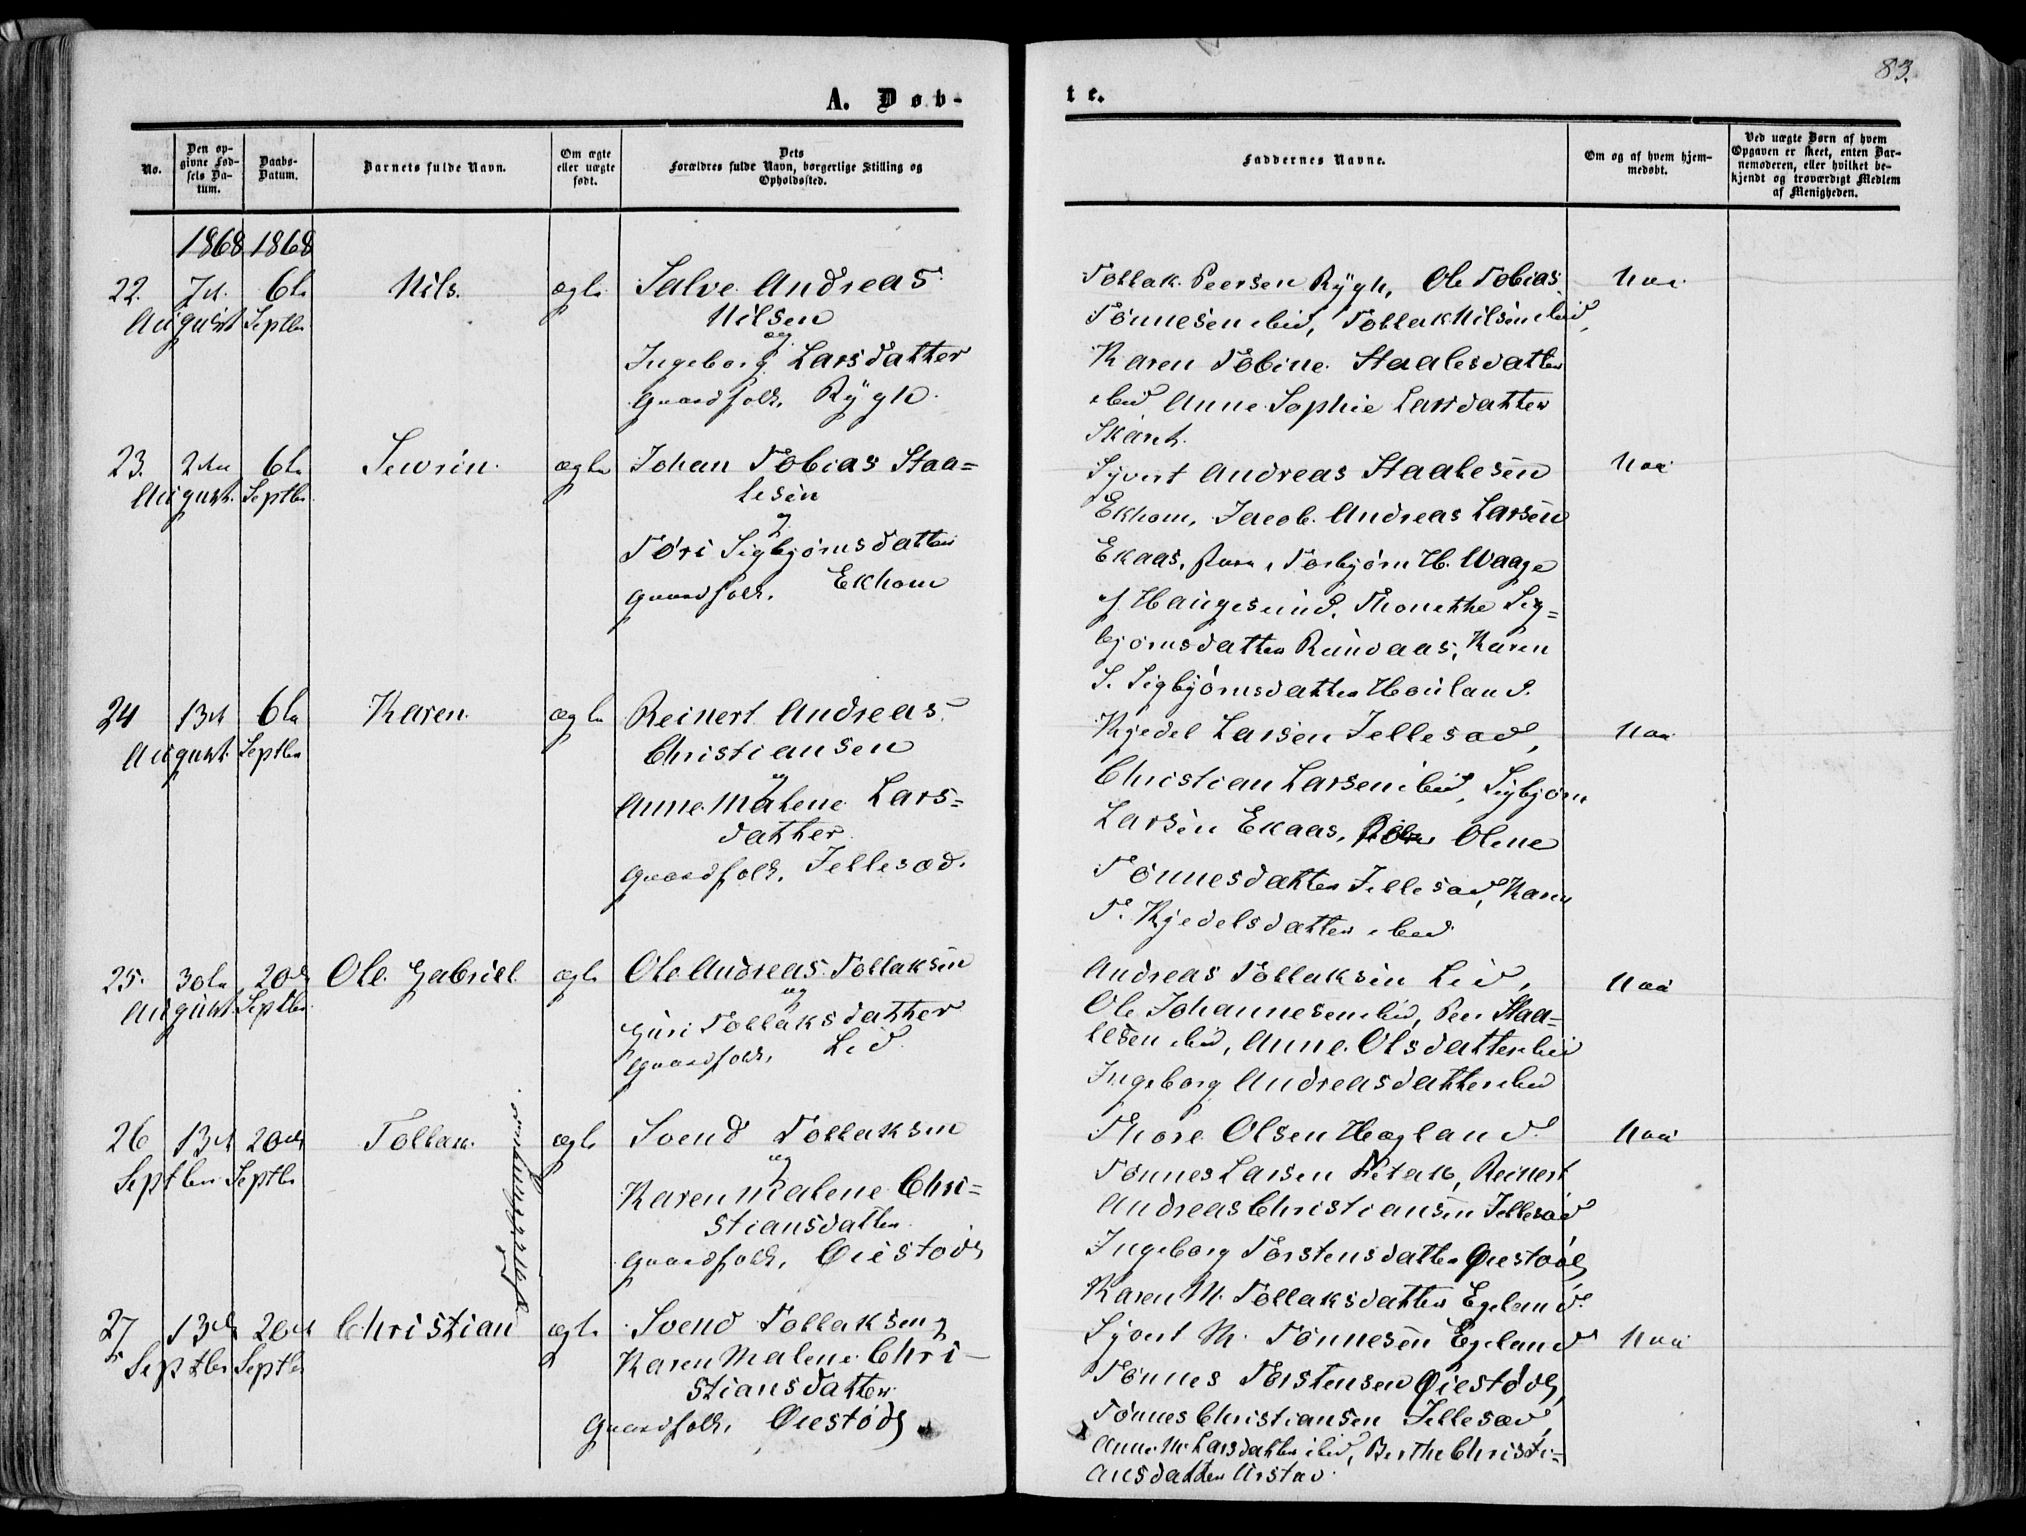 83.
A. Døb-
te.
No.
Den op-
givne Fød-
sels Da-
tum.
Daabs-
Datum.
Barnets fulde Navn.
Om ægte
eller uægte
født.
Dets
Forældres fulde Navn, borgerlige Stilling og
Opholdssted.
Faddernes Navne.
Om og af hvem hjem-
medøbt.
Ved uægte Børn af hvem
Opgaven er skeet, enten Bar-
nemoderen, eller hvilket be-
kjendt og troværdigt Medlem
af Menigheden.
1868 1868
22.
August
6te
Septbr
Nils.
ægte
Salve Andreas
Nilsen
og
Ingeborg Larsdatter
Gaardfolk, Rygh.
Tollak Peersen Rygh, Ole Tobias
Tønnesen ibid, Tollak Nilsen ibid,
Karen Tobine Staalesdatter
ibid Anne Sophie Larsdatter
Naa
23.
2den
August
6te
Septbr
Sevrin.
ægte
Johan Tobias Staa=
lesen
og
Tøri Sigbjørnsdatter
Gaardfolk, Ekhom
Syvert Andreas Staalesen
Ekhom, Jacob Andreas Larsen
Ekaas, Torbjørn H. Waage
af Haugesund, Thonethe Sig=
bjørnsdatter Rundaas, Karen
S. Sigbjørnsdatter Houland.
Naa
24
13de
August
6te
Septbr
Karen
ægte
Reinert Andreas
Christiansen
og
Anne Malene Lars=
datter
Gaardfolk, Jellesad.
Kjedel Larsen Jellesad,
Christian Larsen ibid, Sigbjørn
Larsen Ekaas, Olene
Tønnesdatter Jellesad, Karen
T. Kjedelsdatter ibid
Naa
25.
30te
August
20de
Septbr.
Ole Gabriel
ægte
Ole Andreas Tollaksen
og
Guri Tollaksdatter
Gaardfolk, Lid
Andreas Tollaksen Lid,
Ole Johannesen ibid, Peer Staa=
lesen ibid, Anne Olsdatter ibid
Ingeborg Andreasdatter ibid
Naa
26
13de
Septbr
20de
Septbr
Tollak
ægte
Svend Tollaksen
og
Karen Malene Chri=
stiansdatter
Gaardfolk, Øiestøds
Thore Olsen Høgland
Tønnes Larsen Fitak, Reinert
Andreas Christiansen Jellesad
Ingeborg Torstensdatter Øiestøds,
Karen M. Tollaksdatter Egeland.
Naa
27
13de
Septbr
20de
Septbr
Christian
ægte
Svend Tollaksen og
Karen Malene Chri-
stiansdatter
Gaardfolk, Øiestøds
Syvert M. Tønnesen Egeland
Tønnes Torstensen Øiestøds,
Tønnes Christiansen Jellesad,
Anne M. Larsdatter ibid, Berthe Christi=
ansdatter Arstad.
Naa